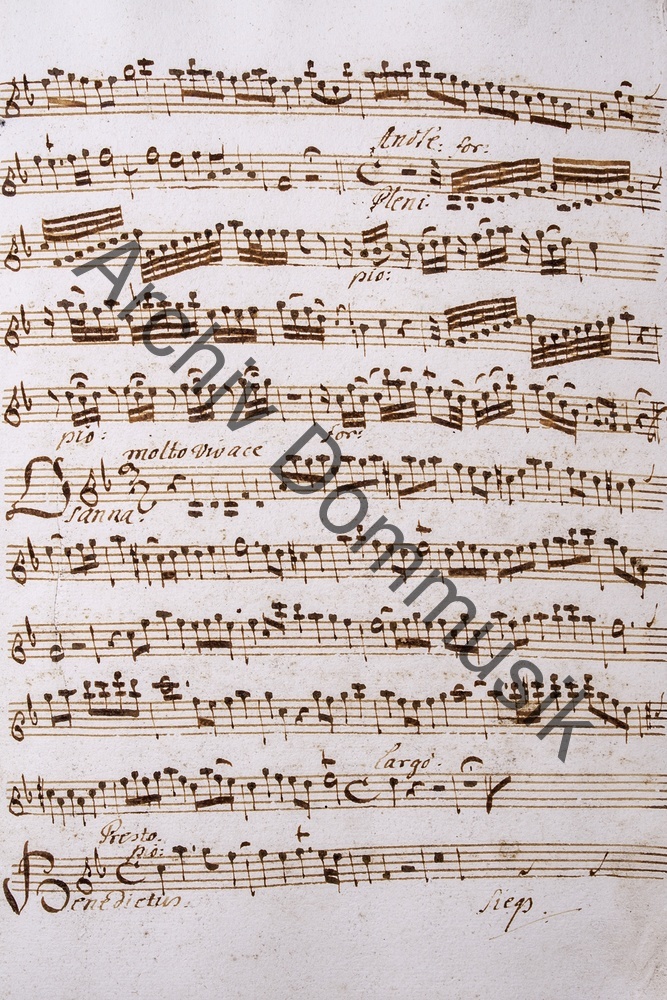 Andte: for:
Pleni
pio:
pio: for:
molto vivace
Osanna:
largo.
Presto.
pio:
Benedictus.
Archiv Dommusik